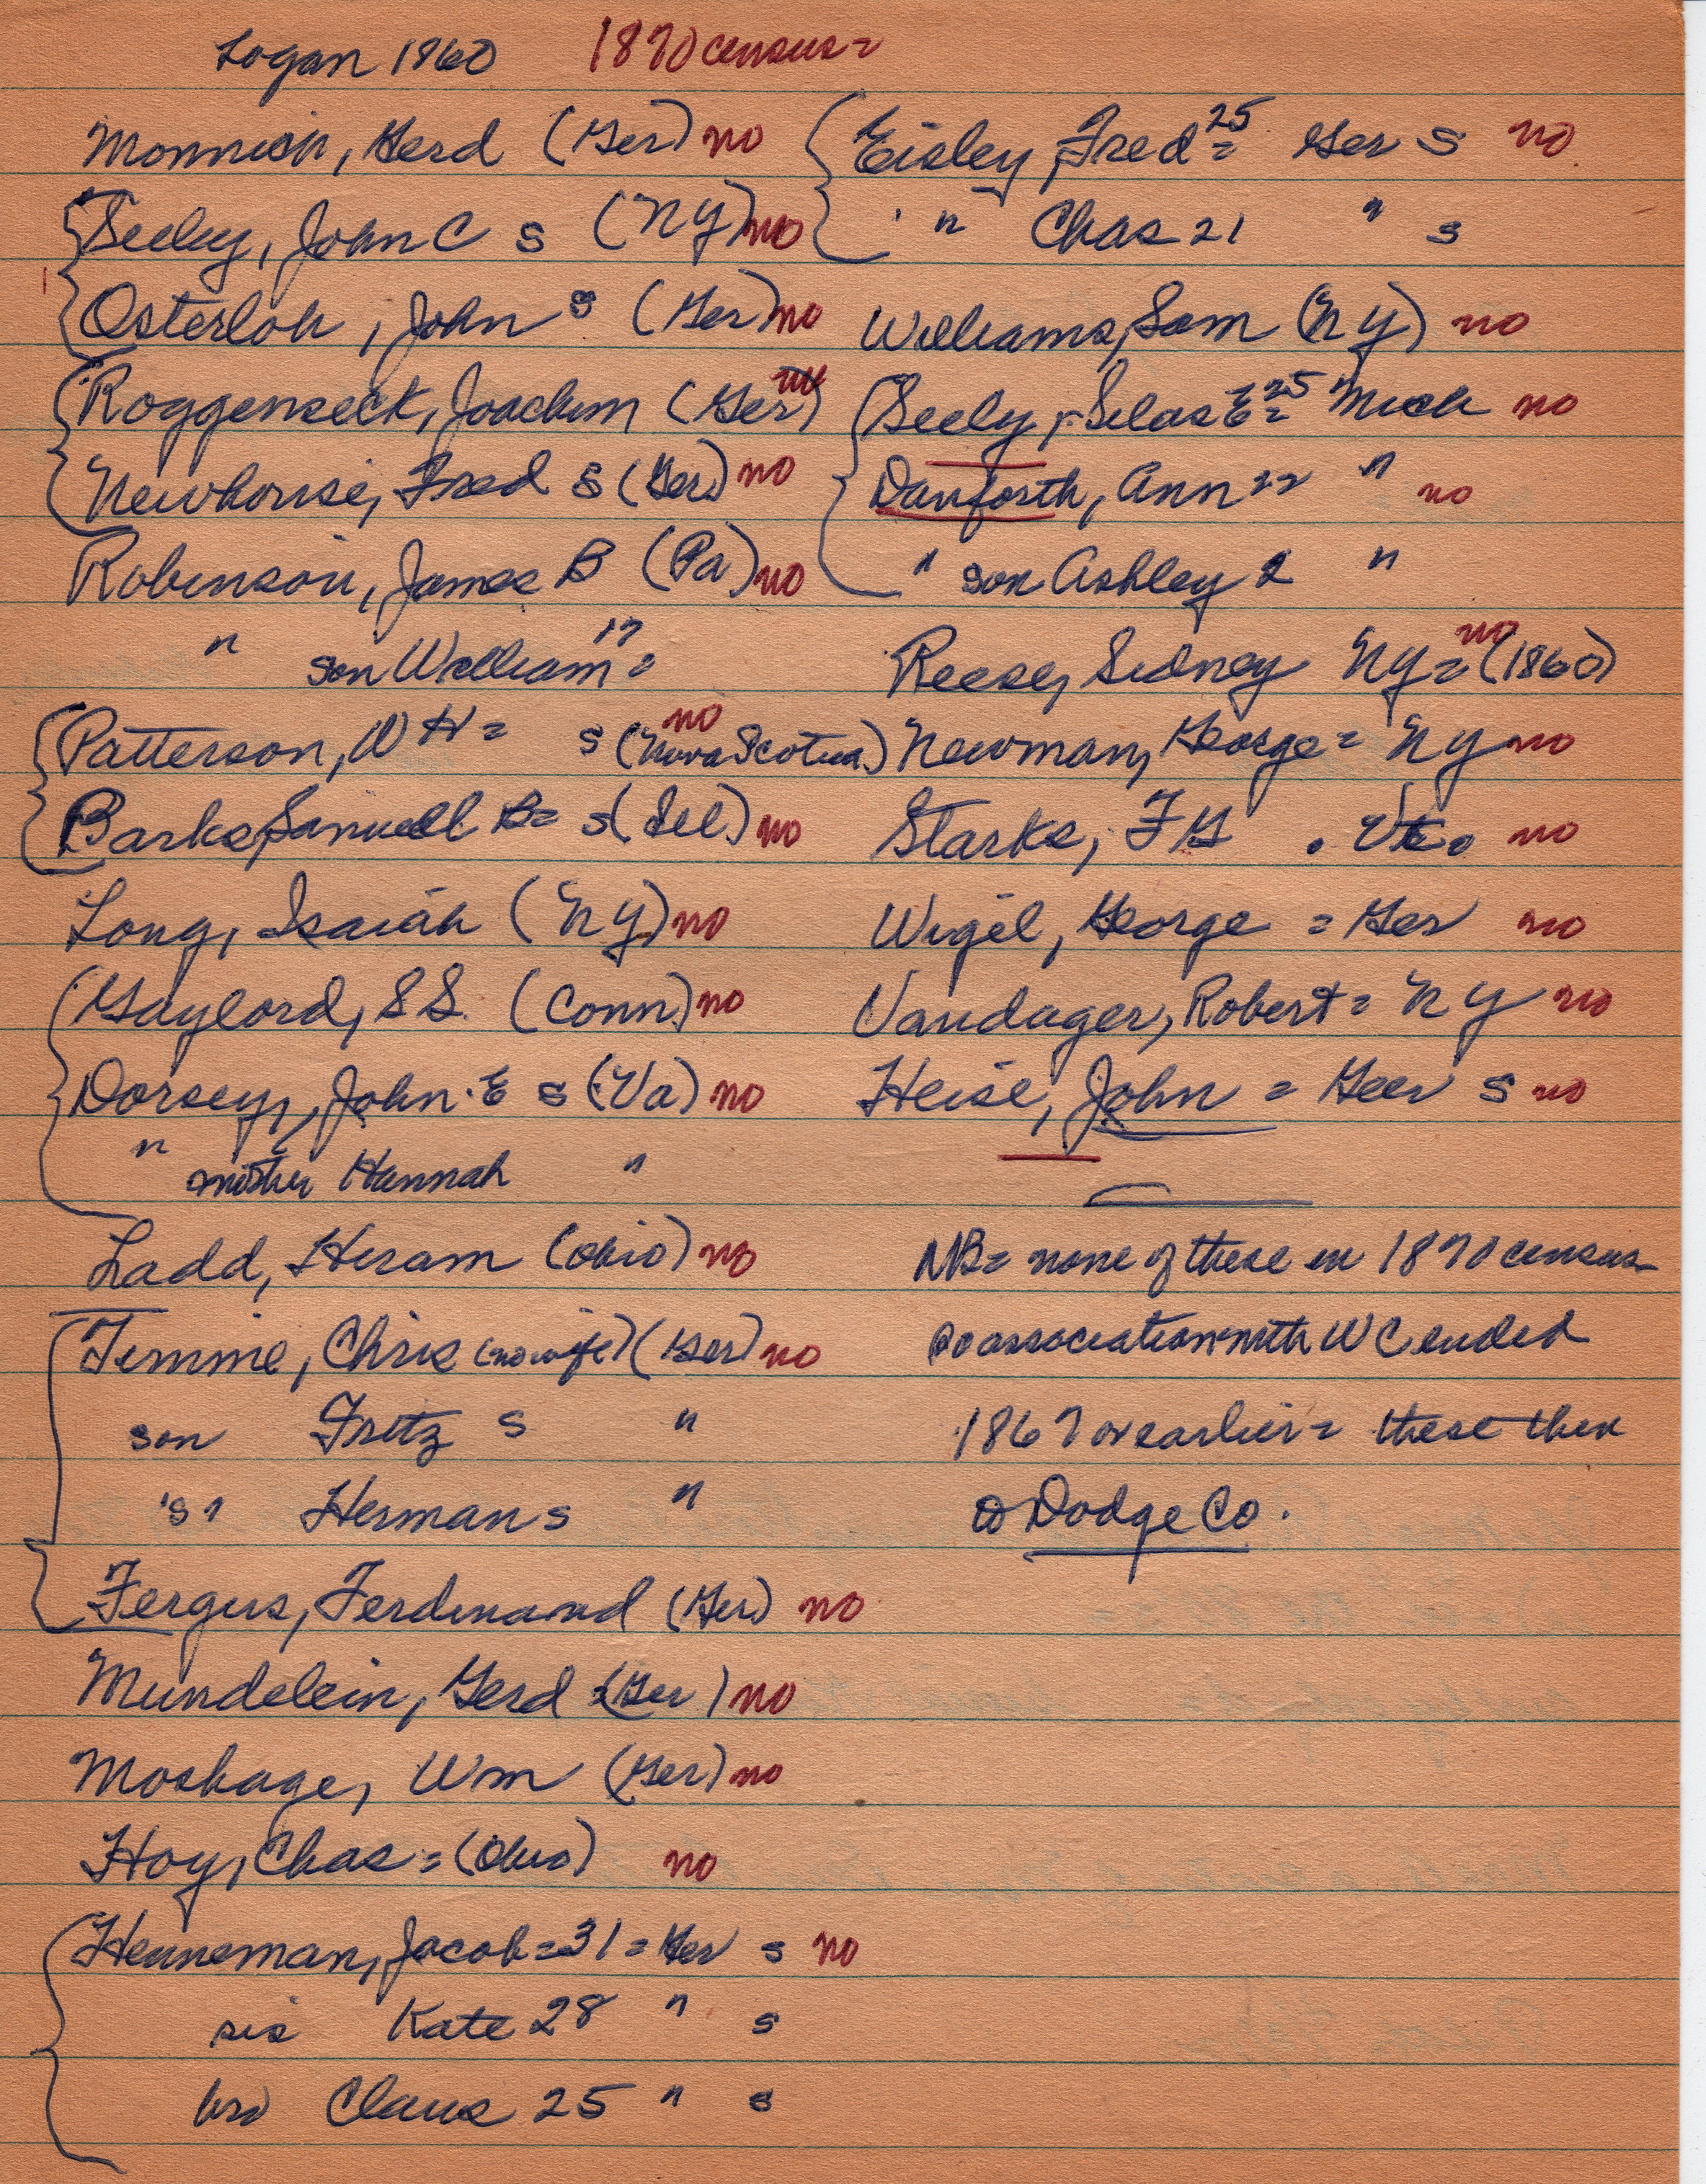 Logan 1860 1870 census=
Monnich, Gerd (Ger) no
{ Seeley, John C s (NY) no
Osterloh, John s (Ger) no
{ Roggenseck, Joachim (Ger) no
Newhouse, Fred s (Ger) no
Robinson, James B (Pa) no
" son William 17=
{ Patterson, W H= s (Nova Scotia) no
Barks, Samuel B= s (Del) no
Long, Isaiah (NY) no
{ Gaylord, S S. (Conn) no
Dorsey, John E s (Va) no
" mother Hannah "
Ladd, Hiram (Ohio) no
{ Temme, Chris (no wife) (Ger) no
son Fritz s "
" Herman s "
Fergus, Ferdinand (Ger) no
Mundelein, Gerd (Ger) no
Moshage, Wm (Ger) no
Hoy, Chas = (Ohio) no
{ Henneman, Jacob = 31 = Ger s no
sis Kate 28 " s
bro Claus 25 " s
{ Eisley, Fred 25= Ger s no
" Chas 21 " s
Williams, Sam (NY) no
{ Seely, Silas E 25= Mich no
Danforth, Ann 22 " no
" son Ashley 2 "
Reese, Sidney NY= (1860) no
Newman, George = NY no
Starks, F G . Vt. no
Wigel, George = Ger no
Vandager, Robert = NY no
Heise, John = Ger s no
NB= none of these in 1870 census
so association with WC ended
1867 or earlier = these then
to Dodge Co.